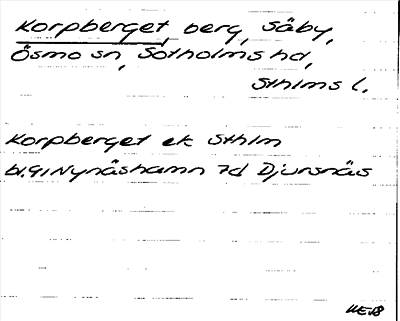 Korpberget, berg, Säby,
Ösmo sn, Sotholms hd,
Sthlms l.
Korpberget ek Sthlm
bl. 91 Nynäshamn 7d Djursnäs